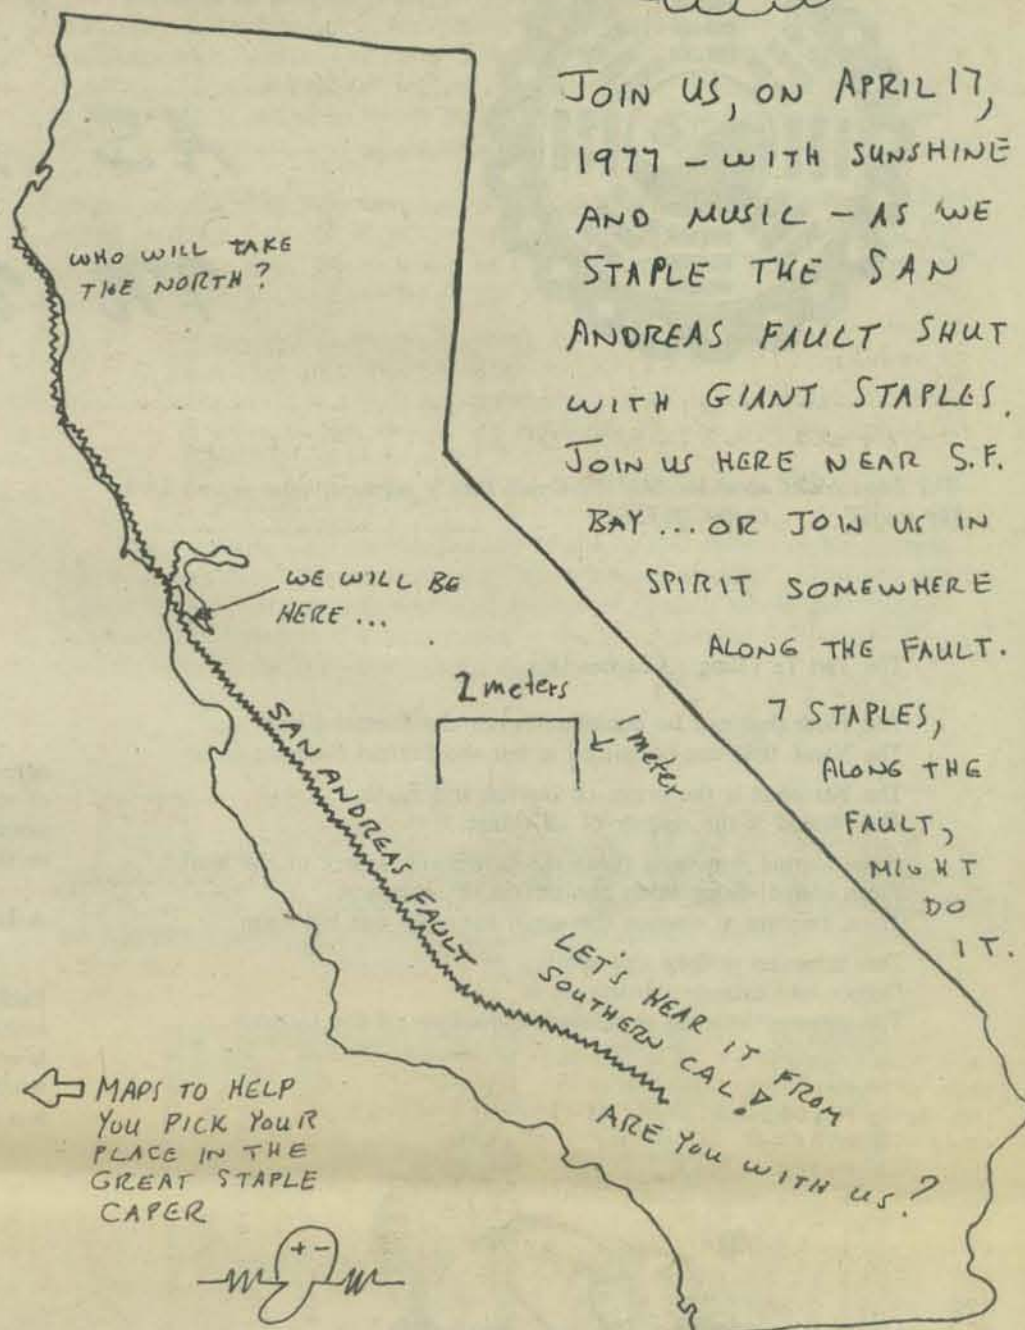 JOIN US, ON APRIL 17,
1977 - WITH SUNSHINE
AND MUSIC - AS WE
STAPLE THE SAN
ANDREAS FAULT SHUT
WITH GIANT STAPLES.
JOIN US HERE NEAR S.F.
BAY... OR JOIN US IN
SPIRIT SOMEWHERE
ALONG THE FAULT.
7 STAPLES,
ALONG THE
FAULT,
MIGHT
DO
IT.
WHO WILL TAKE
THE NORTH?
WE WILL BE
HERE ...
2 meters
1 meter
SAN ANDREAS FAULT
LET'S HEAR IT FROM
SOUTHERN CAL!
ARE YOU WITH US?
MAPS TO HELP
YOU PICK YOUR
PLACE IN THE
GREAT STAPLE
CAPER
+ -